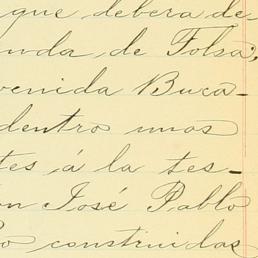 que debera de
nda de Folsa,
venida Buca-
dentro unos
tes á la tes-
on José Pablo
construidas